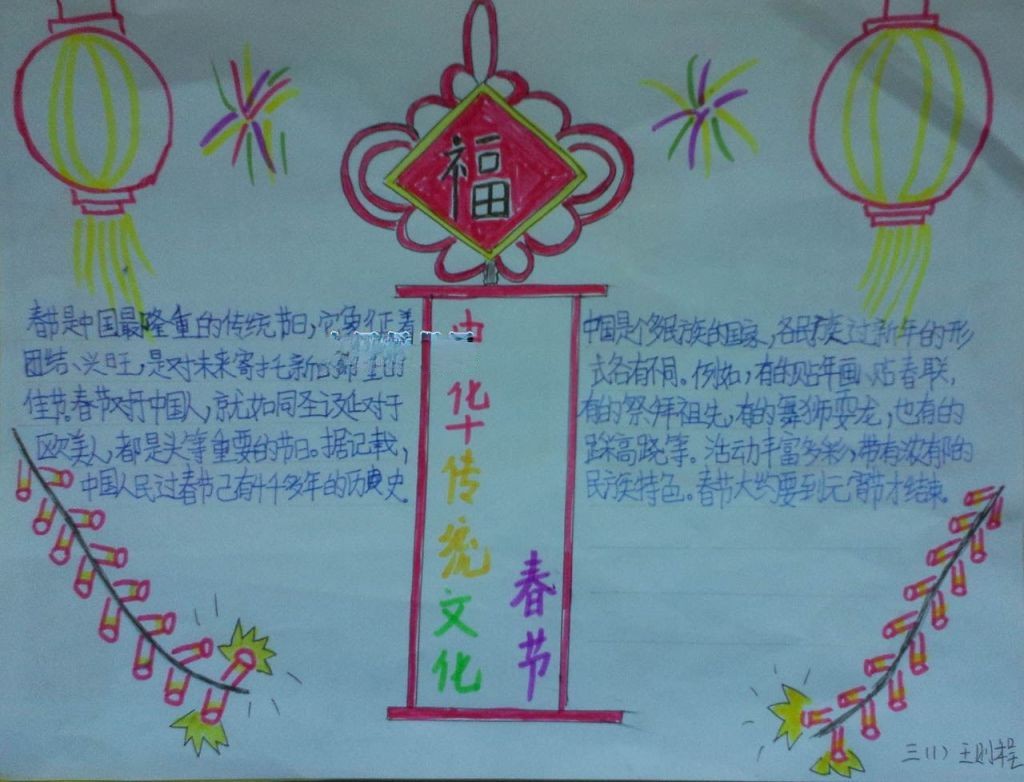 福
中华传统文化
春节
春节是中国最隆重的传统节日,它象征着
团结、兴旺,是对未来寄托新的
佳节。春节对于中国人,就如同圣诞对于
欧美人,都是头等重要的节日。据记载,
中国人民过春节已有4千多年的历史.
中国是个多民族的国家,各民族过新年的形
式各有不同。例如,有的贴年画、贴春联,
有的祭拜祖先,有的舞狮耍龙,也有的
踩高跷等。活动丰富多彩,带有浓郁的
民族特色。春节大约要到元宵节才结束。
三(1)王则程